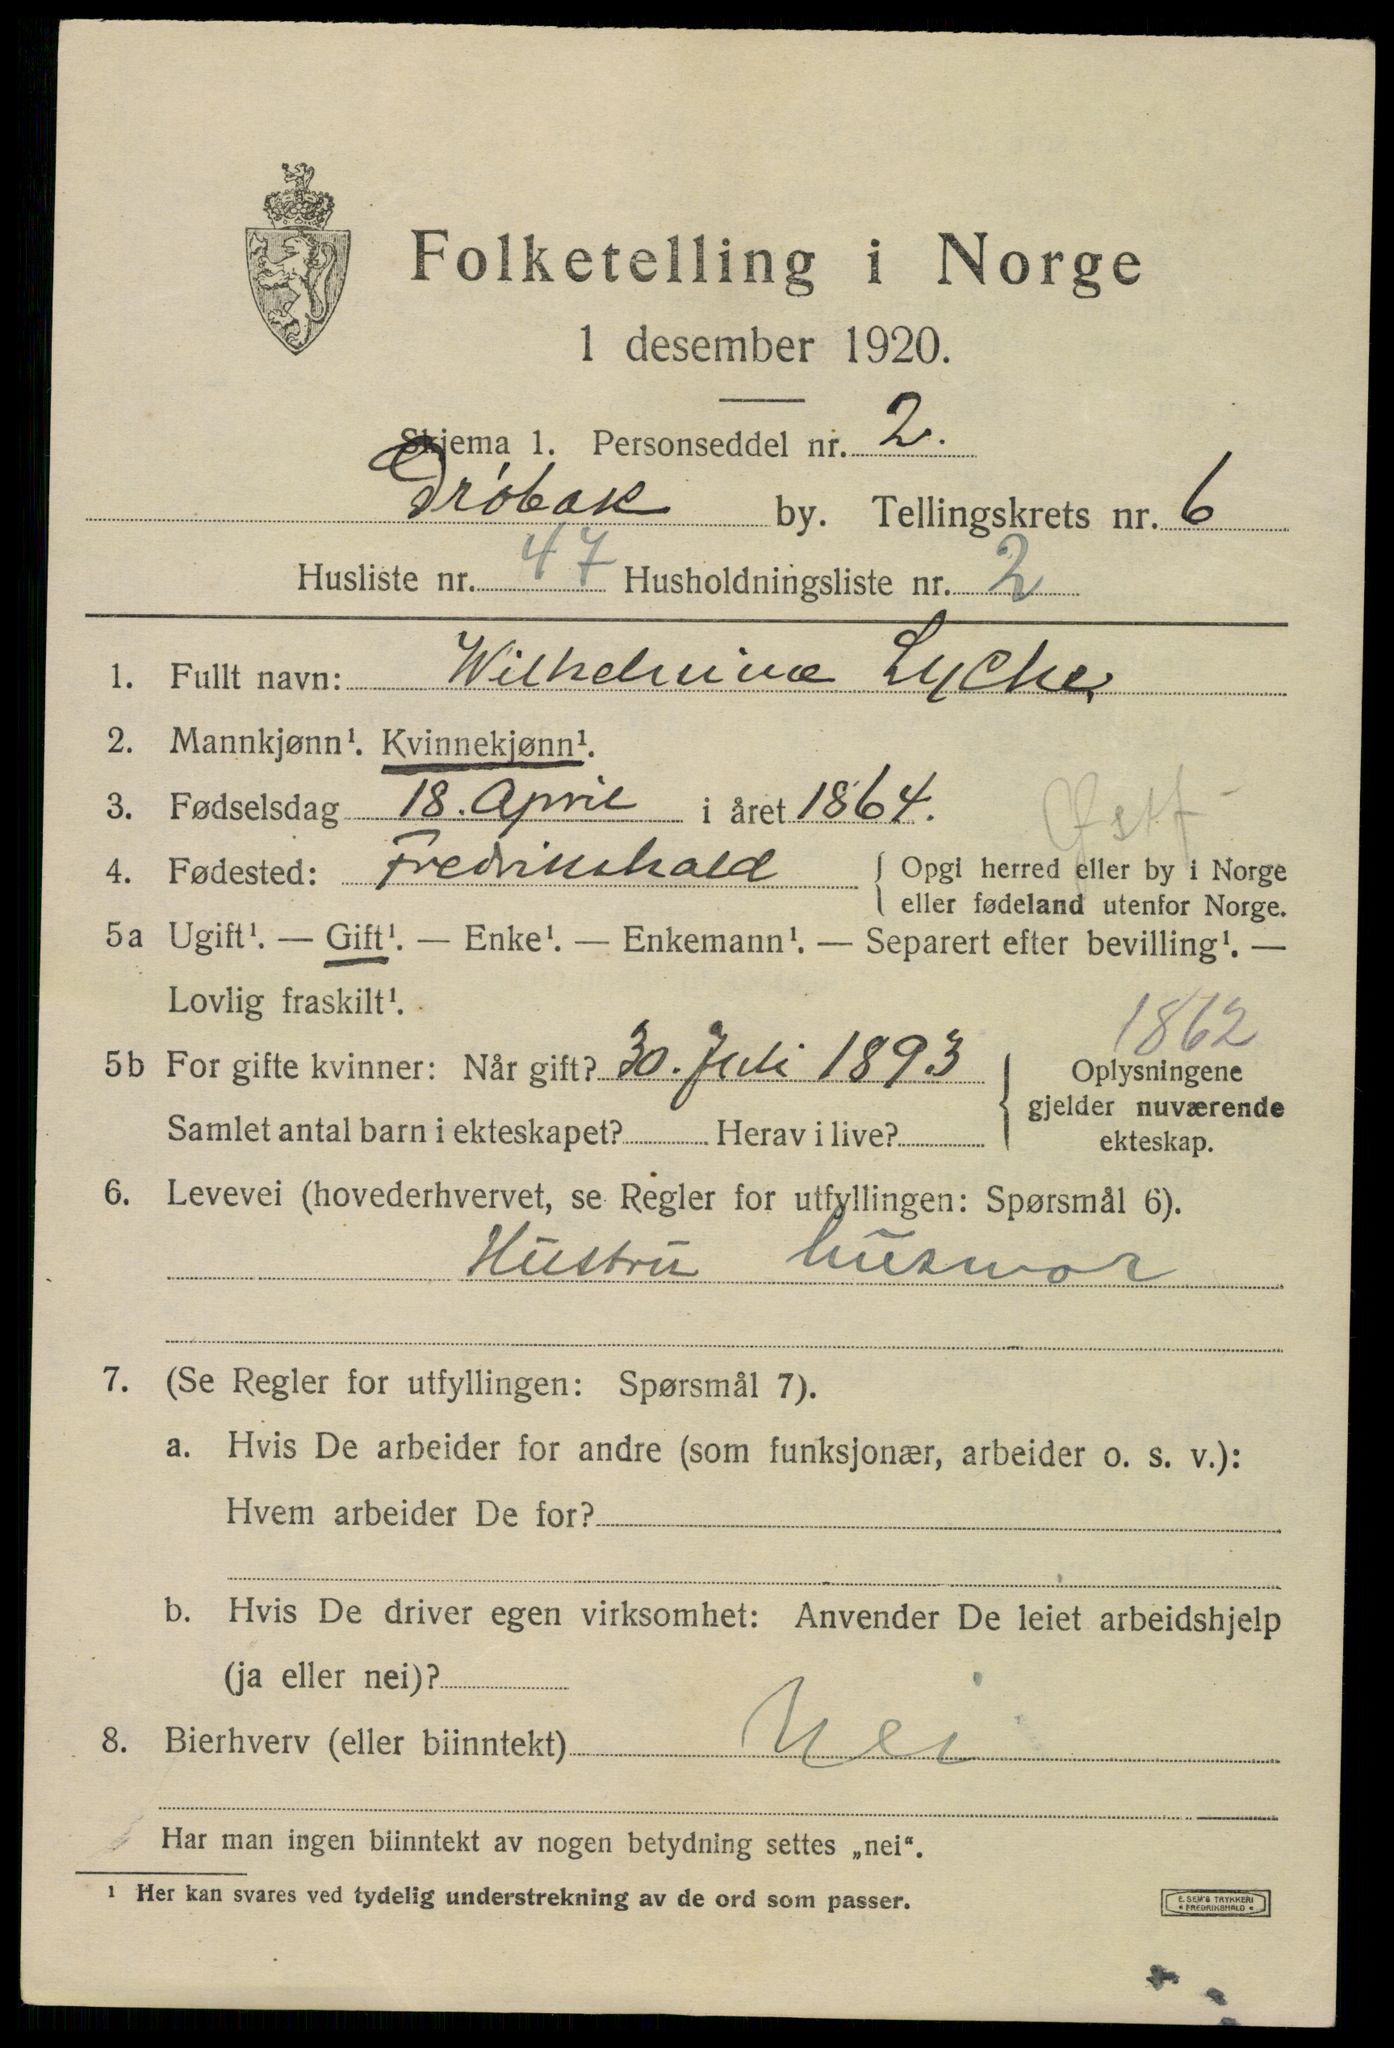 Folketelling i Norge
1 desember 1920.
Skjema 1. Personseddel nr. 2.
Drøbak by. Tellingskrets nr. 6
Husliste nr. 47 Husholdningsliste nr. 2
1. Fullt navn: Wilhelmina Lyche,
2. Mannkjønn¹. Kvinnekjønn¹.
3. Fødselsdag 18. April i året 1864.
Østf
4. Fødested: Fredrikshald { Opgi herred eller by i Norge
eller fødeland utenfor Norge.
5a Ugift¹. — Gift¹. — Enke¹. — Enkemann¹. — Separert efter bevilling¹. —
Lovlig fraskilt¹.
1862
5b For gifte kvinner: Når gift? 30. Juli 1893 { Oplysningene
gjelder nuværende
Samlet antal barn i ekteskapet? Herav i live?
ekteskap.
6. Levevei (hovederhvervet, se Regler for utfyllingen: Spørsmål 6).
Hustru husmor
7. (Se Regler for utfyllingen: Spørsmål 7).
a. Hvis De arbeider for andre (som funksjonær, arbeider o. s. v.):
Hvem arbeider De for?
b. Hvis De driver egen virksomhet: Anvender De leiet arbeidshjelp
(ja eller nei)?
8. Bierhverv (eller biinntekt) Nei
Har man ingen biinntekt av nogen betydning settes „nei“.
¹ Her kan svares ved tydelig understrekning av de ord som passer.
E. SEM'S TRYKKERI
• FREDRIKSHALD •